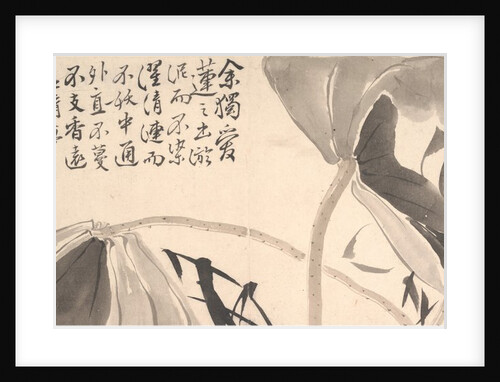 余獨愛
蓮之出淤
泥而不染
濯清漣而
不妖中通
外直不蔓
不支香遠
清